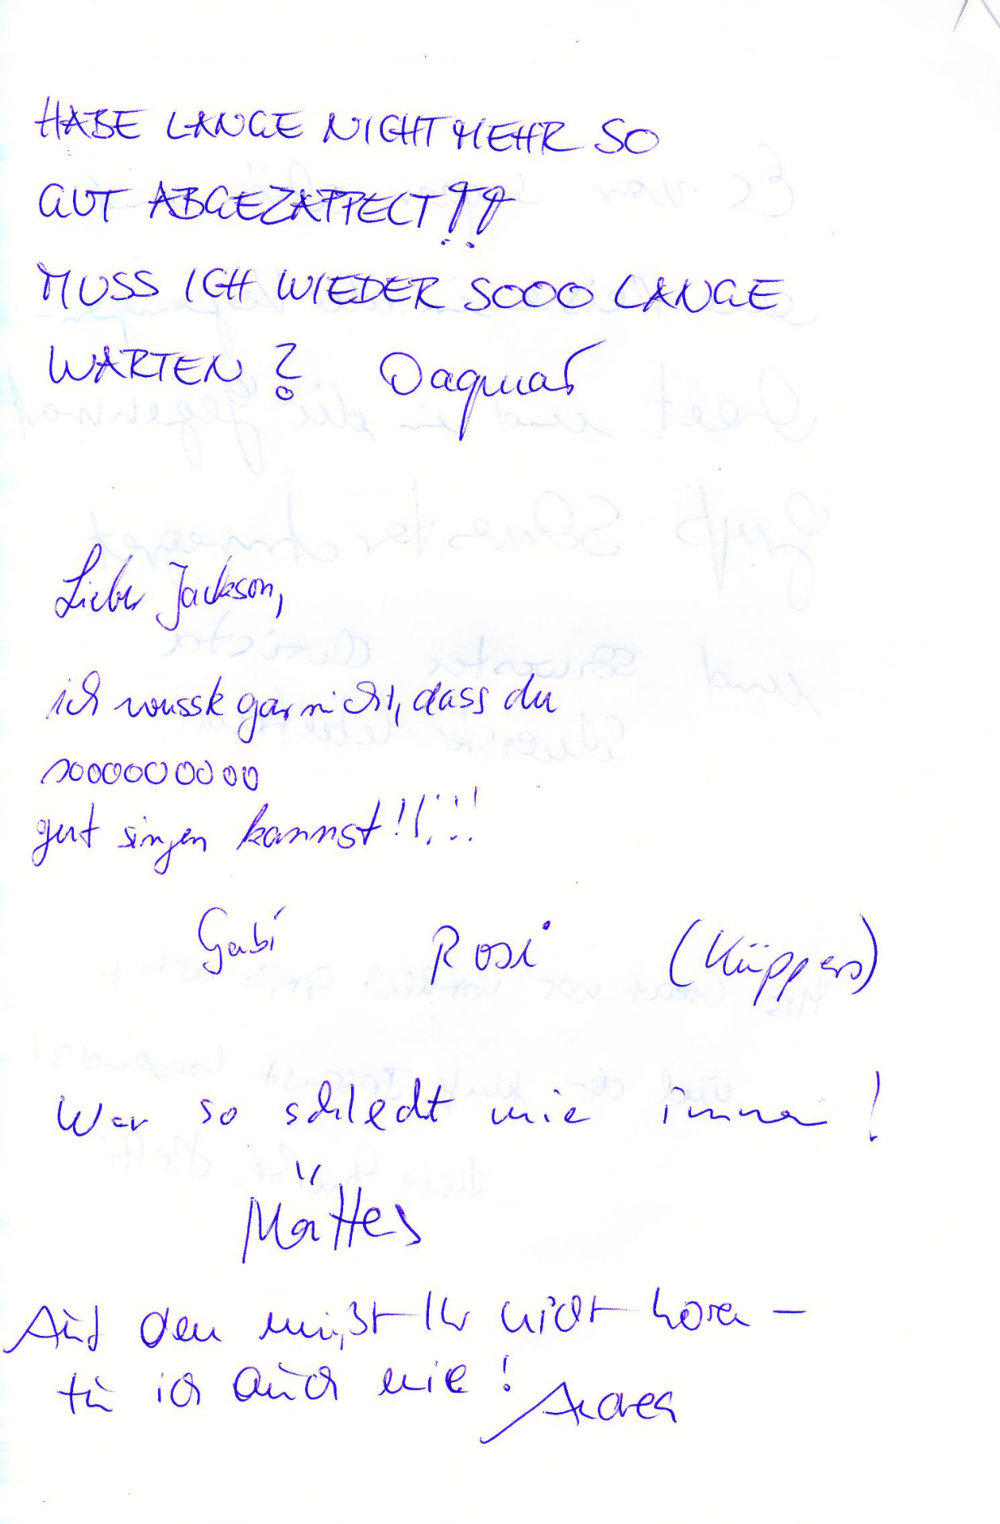 HABE LANGE NICHT MEHR SO
GUT ABGEZAPPELT!!
MUSS ICH WIEDER SOOO LANGE
WARTEN? Dagmar
Lieber Jackson,
ich wusste gar nicht, dass du
sooooooooo
gut singen kannst!!!!!!
Gabi Rosi (Küppers)
War so schlecht wie immer!
Mättes
Auf den müßt Ihr nicht hören –
tu ich auch nie! Andrea